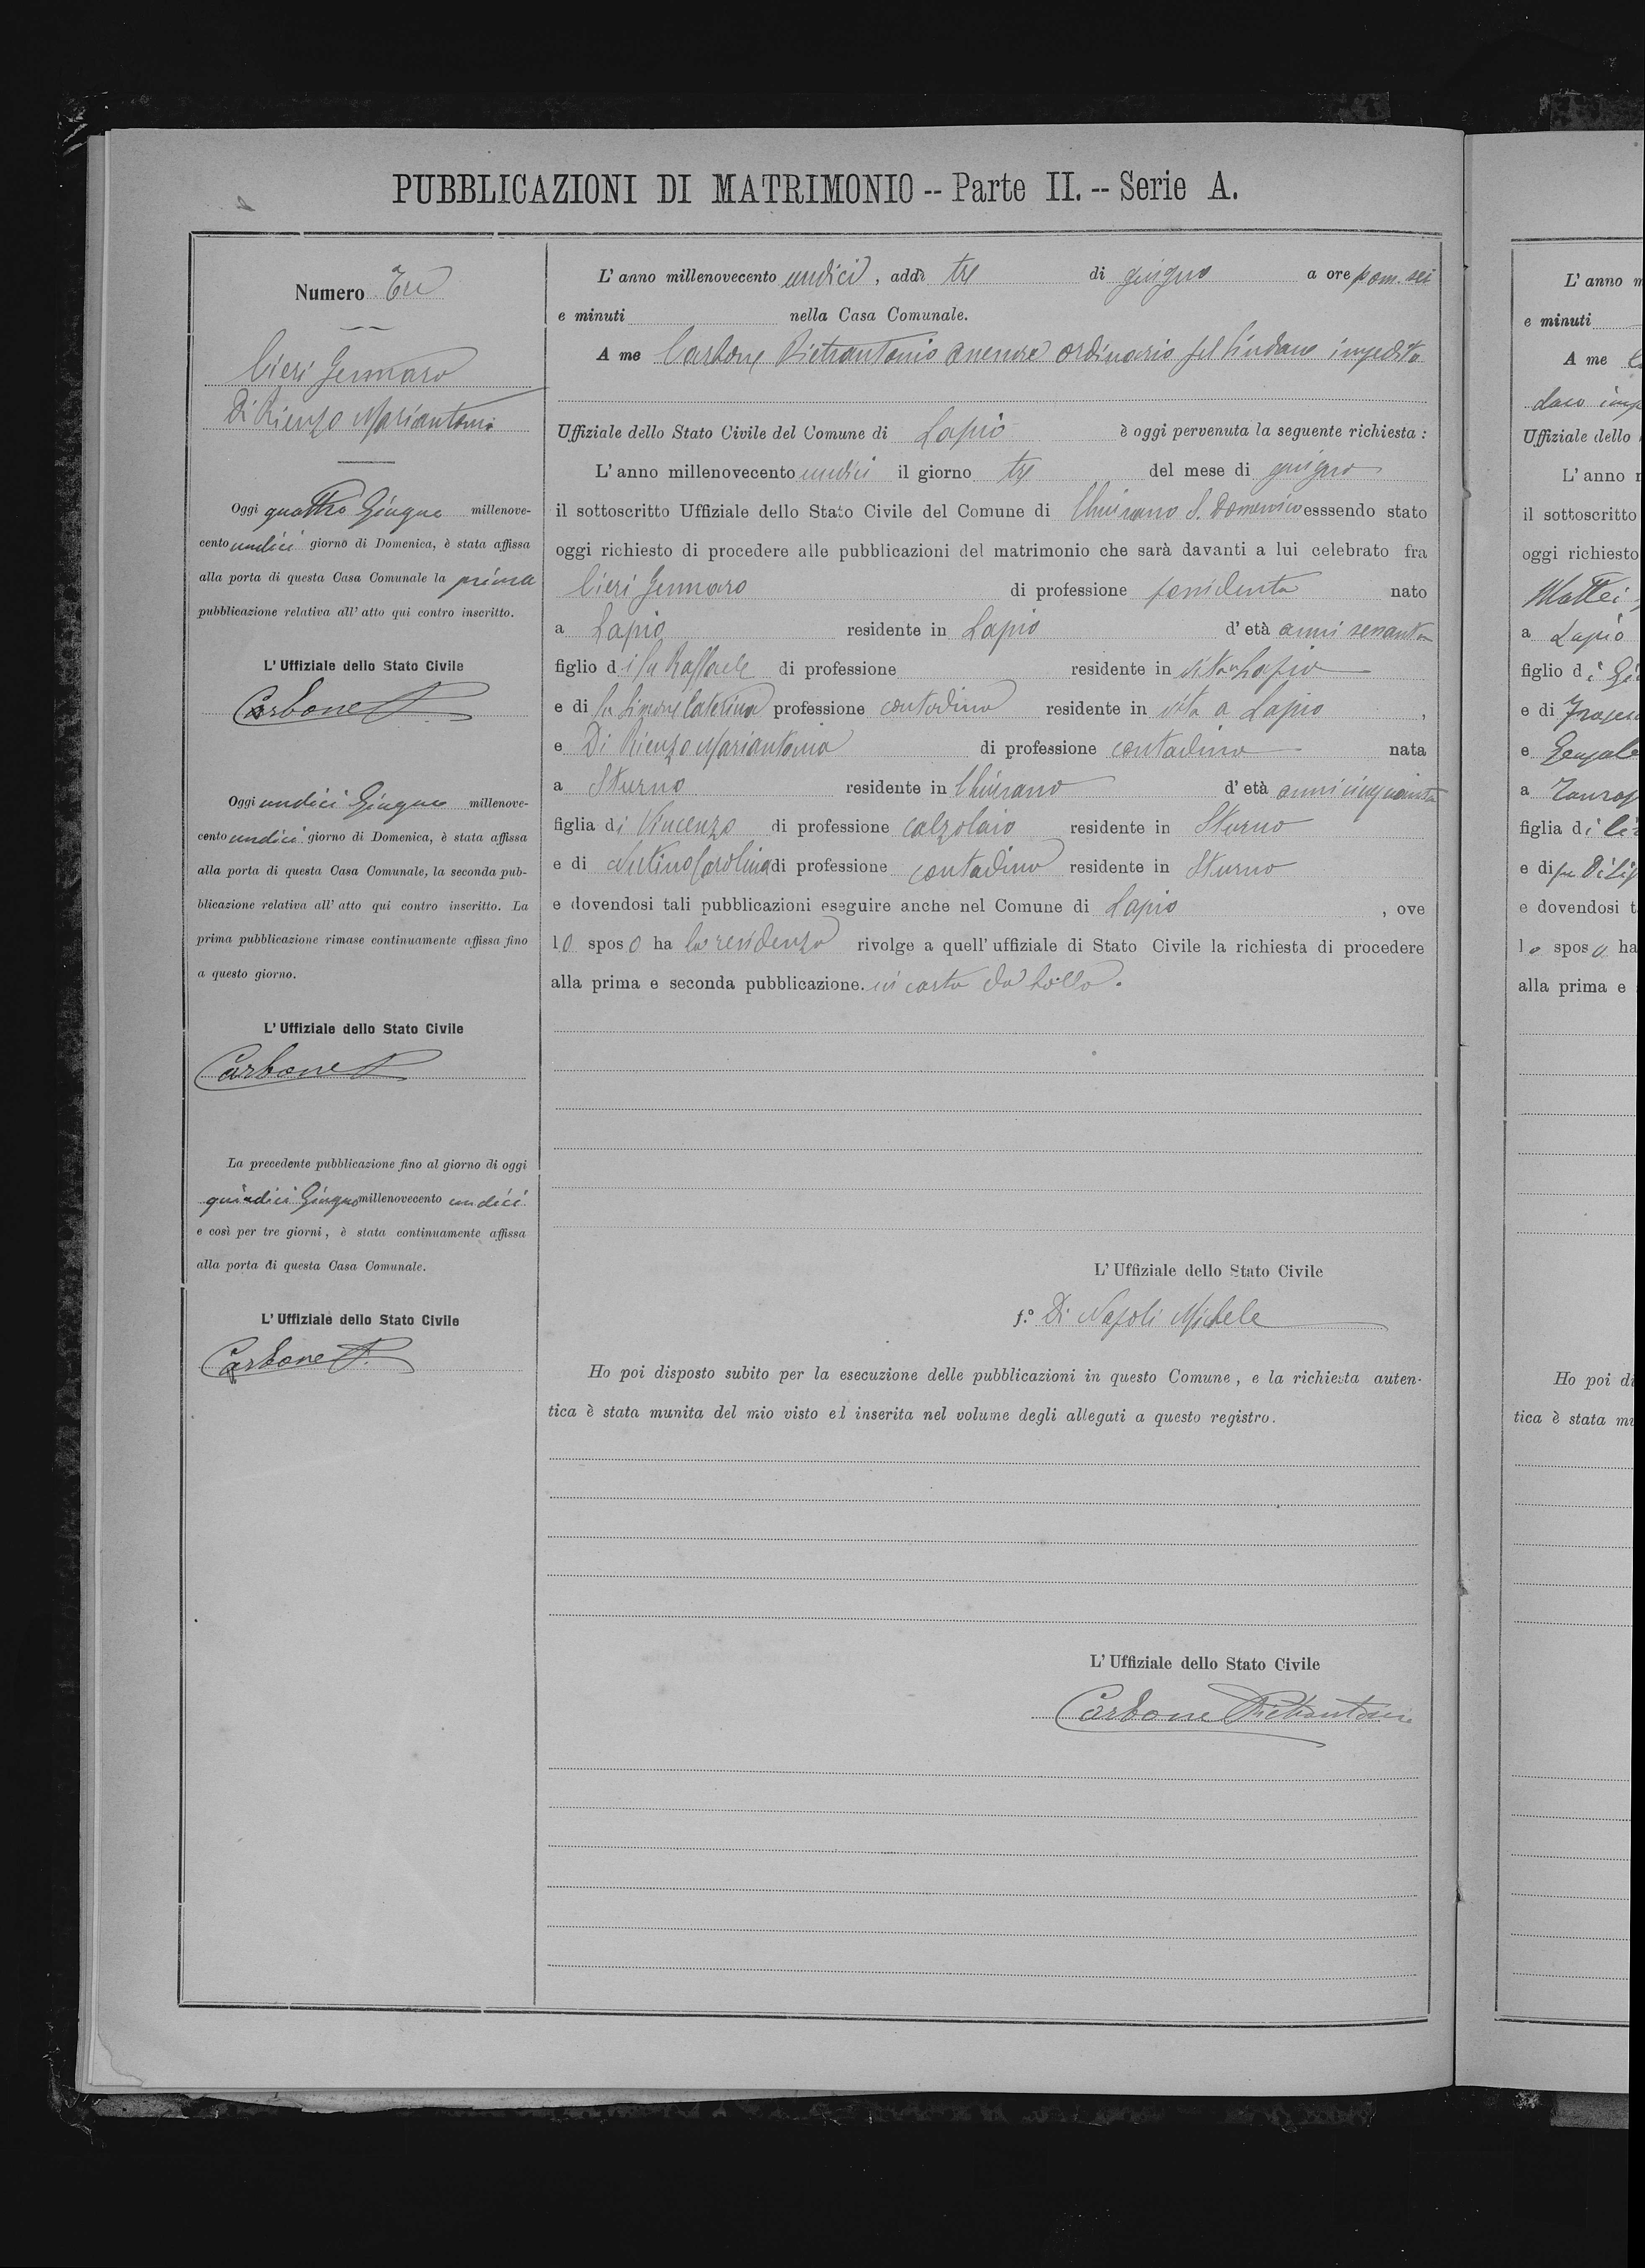 PUBBLICAZIONI DI MATRIMONIO -- Parte II. -- Serie A.
Numero Tre
Cieri Gennaro
Di Rienzo Mariantonia
Oggi quattro Giugno millenove-
cento undici giorno di Domenica, è stata affissa
alla porta di questa Casa Comunale la prima
pubblicazione relativa all' atto qui contro inscritto.
L' Uffiziale dello Stato Civile
Carbone P.
Oggi undici Giugno millenove-
cento undici giorno di Domenica, è stata affissa
alla porta di questa Casa Comunale, la seconda pub-
blicazione relativa all' atto qui contro inscritto. La
prima pubblicazione rimase continuamente affissa fino
a questo giorno.
L' Uffiziale dello Stato Civile
Carbone P.
La precedente pubblicazione fino al giorno di oggi
quindici Giugno millenovecento undici
e così per tre giorni, è stata continuamente affissa
alla porta di questa Casa Comunale.
L' Uffiziale dello Stato Civile
Carbone P.
L' anno millenovecento undici, addì tre di giugno a ore pom. sei
e minuti nella Casa Comunale.
A me Carbone Pietrantonio assessore ordinario pel Sindaco impedito
Uffiziale dello Stato Civile del Comune di Lapio è oggi pervenuta la seguente richiesta :
L' anno millenovecento undici il giorno tre del mese di giugno
il sottoscritto Uffiziale dello Stato Civile del Comune di Chiusano S. Domenico esssendo stato
oggi richiesto di procedere alle pubblicazioni del matrimonio che sarà davanti a lui celebrato fra
Cieri Gennaro di professione possidente nato
a Lapio residente in Lapio d' età anni sessanta
figlio di fu Raffaele di professione residente in vita a Lapio
e di fu Simone Caterina professione contadina residente in vita a Lapio ,
e Di Rienzo Mariantonia di professione contadina nata
a Sturno residente in Chiusano d' età anni cinquanta
figlia di Vincenzo di professione calzolaio residente in Sturno
e di Carolina di professione contadina residente in Sturno
e dovendosi tali pubblicazioni eseguire anche nel Comune di Lapio , ove
lo sposo ha la residenza rivolge a quell' uffiziale di Stato Civile la richiesta di procedere
alla prima e seconda pubblicazione. in carta da bollo.
L' Uffiziale dello Stato Civile
f.° Di Napoli Michele
Ho poi disposto subito per la esecuzione delle pubblicazioni in questo Comune, e la richiesta auten-
tica è stata munita del mio visto ed inserita nel volume degli allegati a questo registro.
L' Uffiziale dello Stato Civile
Carbone Pietrantonio
L' anno
e minuti
A me
daco
Uffiziale dello
L' anno
il sottoscritto
oggi richiesto
Mattei
a Lapio
figlio di
e di
e
a
figlia di
e di fu
e dovendosi
lo sposo ha
alla prima e
Ho poi
tica è stata